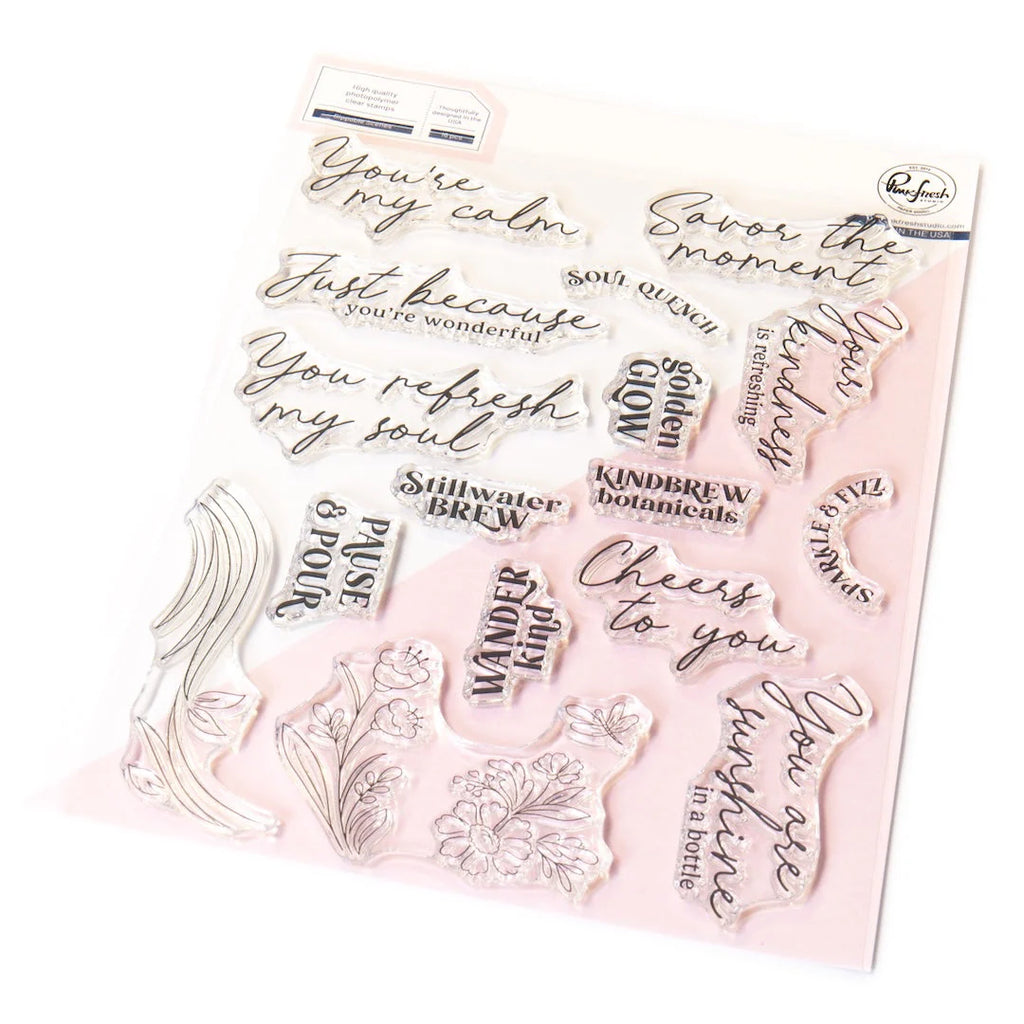 High quality
photopolymer
clear stamps
Sippable Scenes
Thoughtfully
designed in the
USA
EST. 2013
Pinkfresh
STUDIO
kfreshstudio.com
IN THE USA
You're
my calm
Savor the
moment
Just because
you're wonderful
SOUL QUENCH
Your
kindness
is refreshing
You refresh
my soul
golden
GLOW
Stillwater
BREW
KINDBREW
botanicals
SPARKLE & FIZZ
PAUSE
& POUR
WANDER
kind
Cheers
to you
You are
sunshine
in a bottle